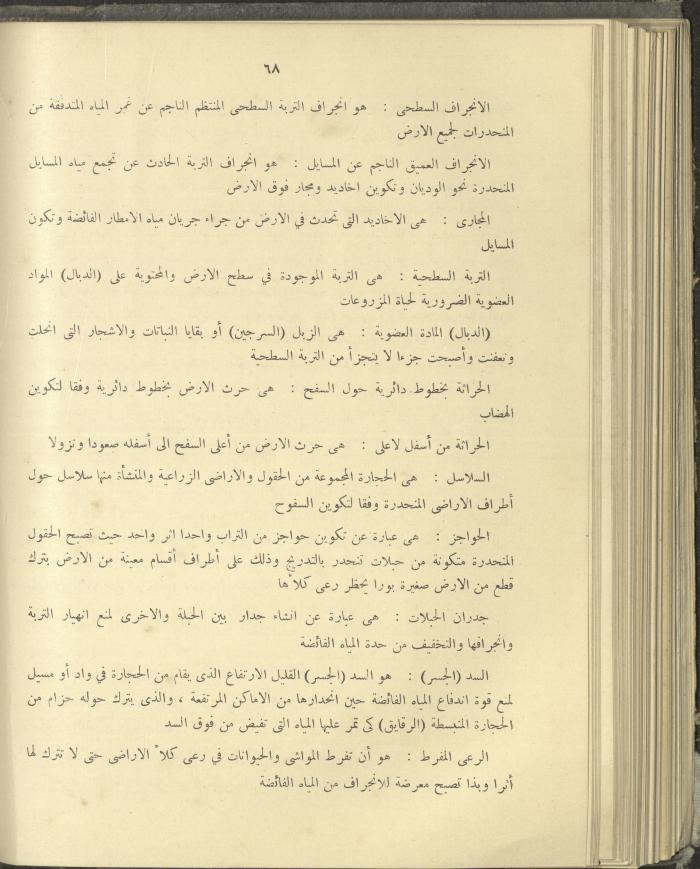 ٦٨
الانجراف السطحى : هو انجراف التربة السطحى المنتظم الناجم عن غمر المياه المتدفقة من
المنحدرات لجميع الارض
الانجراف العميق الناجم عن المسايل : هو انجراف التربة الحادث عن تجمع مياه المسايل
المنحدرة نحو الوديان وتكوين اخاديد ومجار فوق الارض
المجارى : هى الاخاديد التى تحدث في الارض من جراء جريان مياه الامطار الفائضة وتكون
المسايل
التربة السطحية : هى التربة الموجودة في سطح الارض والمحتوية على (الدبال) المواد
العضوية الضرورية لحياة المزروعات
(الدبال) المادة العضوية : هى الزبل (السرجين) أو بقايا النباتات والاشجار التى انحلت
وتعفنت وأصبحت جزءا لا يتجزأ من التربة السطحية
الحراثة بخطوط دائرية حول السفح : هى حرث الارض بخطوط دائرية وفقا لتكوين
الهضاب
الحراثة من أسفل لاعلى : هى حرث الارض من أعلى السفح الى أسفله صعودا ونزولا
السلاسل : هى الحجارة المجموعة من الحقول والاراضى الزراعية والمنشأة منها سلاسل حول
أطراف الاراضى المنحدرة وفقا لتكوين السفوح
الحواجز : هى عبارة عن تكوين حواجز من التراب واحدا اثر واحد حيث تصبح الحقول
المنحدرة متكونة من حبلات تنحدر بالتدريج وذلك على أطراف أقسام معينة من الارض بترك
قطع من الارض صغيرة بورا يحظر رعى كلأها
جدران الحبلات : هى عبارة عن انشاء جدار بين الحبلة والاخرى لمنع انهيار التربة
وانجرافها والتخفيف من حدة المياه الفائضة
السد (الجسر) : هو السد (الجسر) القليل الارتفاع الذى يقام من الحجارة في واد أو مسيل
لمنع قوة اندفاع المياه الفائضة حين انحدارها من الاماكن المرتفعة ، والذى يترك حوله حزام من
الحجارة المنبسطة (الرقايق) كى تمر عليها المياه التى تفيض من فوق السد
الرعى المفرط : هو أن تفرط المواشى والحيوانات في رعى كلأ الاراضى حتى لا تترك لها
أثرا وبذا تصبح معرضة للانجراف من المياه الفائضة